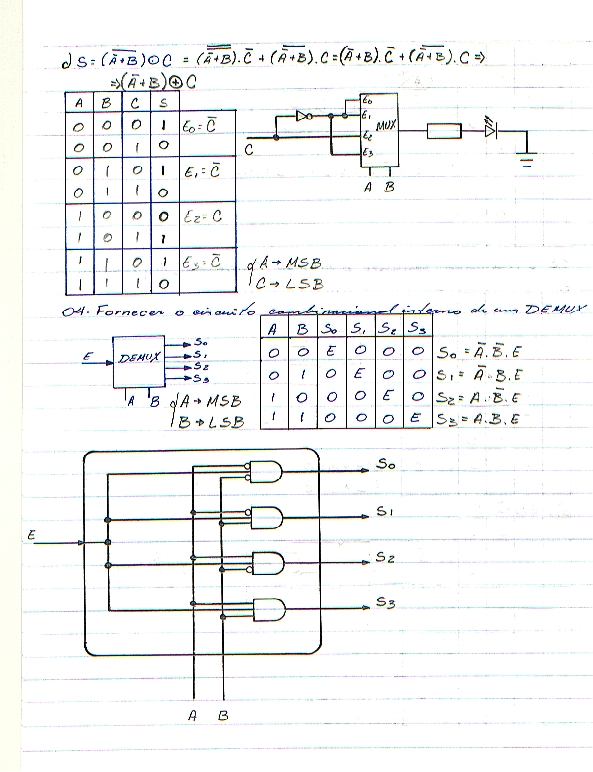 d) S = (A̅+B)‾ ⊙ C = ((A̅+B)‾)‾ . C̅ + (A̅+B)‾ . C = (A̅+B) . C̅ + (A̅+B)‾ . C ⇒
⇒ (A̅+B) ⊕ C
A B C S
0 0 0 1 E0 = C̅
0 0 1 0
0 1 0 1 E1 = C̅
0 1 1 0
1 0 0 0 E2 = C
1 0 1 1
1 1 0 1 E3 = C̅
1 1 1 0
C
E0
E1
MUX
E2
E3
A B
A → MSB
C → LSB
04. Fornecer o circuito combinacional interno de um DEMUX
E DEMUX
S0
S1
S2
S3
A B
A → MSB
B → LSB
A B S0 S1 S2 S3
0 0 E 0 0 0 S0 = A̅ . B̅ . E
0 1 0 E 0 0 S1 = A̅ . B . E
1 0 0 0 E 0 S2 = A . B̅ . E
1 1 0 0 0 E S3 = A . B . E
S0
S1
E
S2
S3
A B